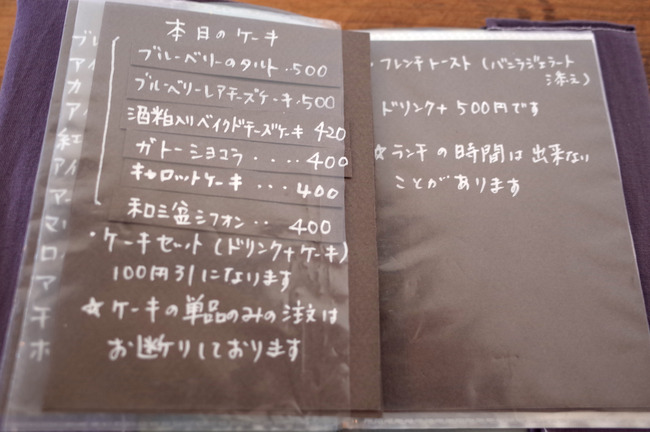 本日のケーキ
ブルーベリーのタルト・・500
ブルーベリーレアチーズケーキ・500
酒粕入りベイクドチーズケーキ 420
ガトーショコラ・・・・400
キャロットケーキ・・・400
和三盆シフォン・・400
・ケーキセット(ドリンク+ケーキ)
100円引になります
☆ケーキの単品のみの注文は
お断りしております
・フレンチトースト(バニラジェラート
添え)
ドリンク+500円です
☆ランチの時間は出来ない
ことがあります